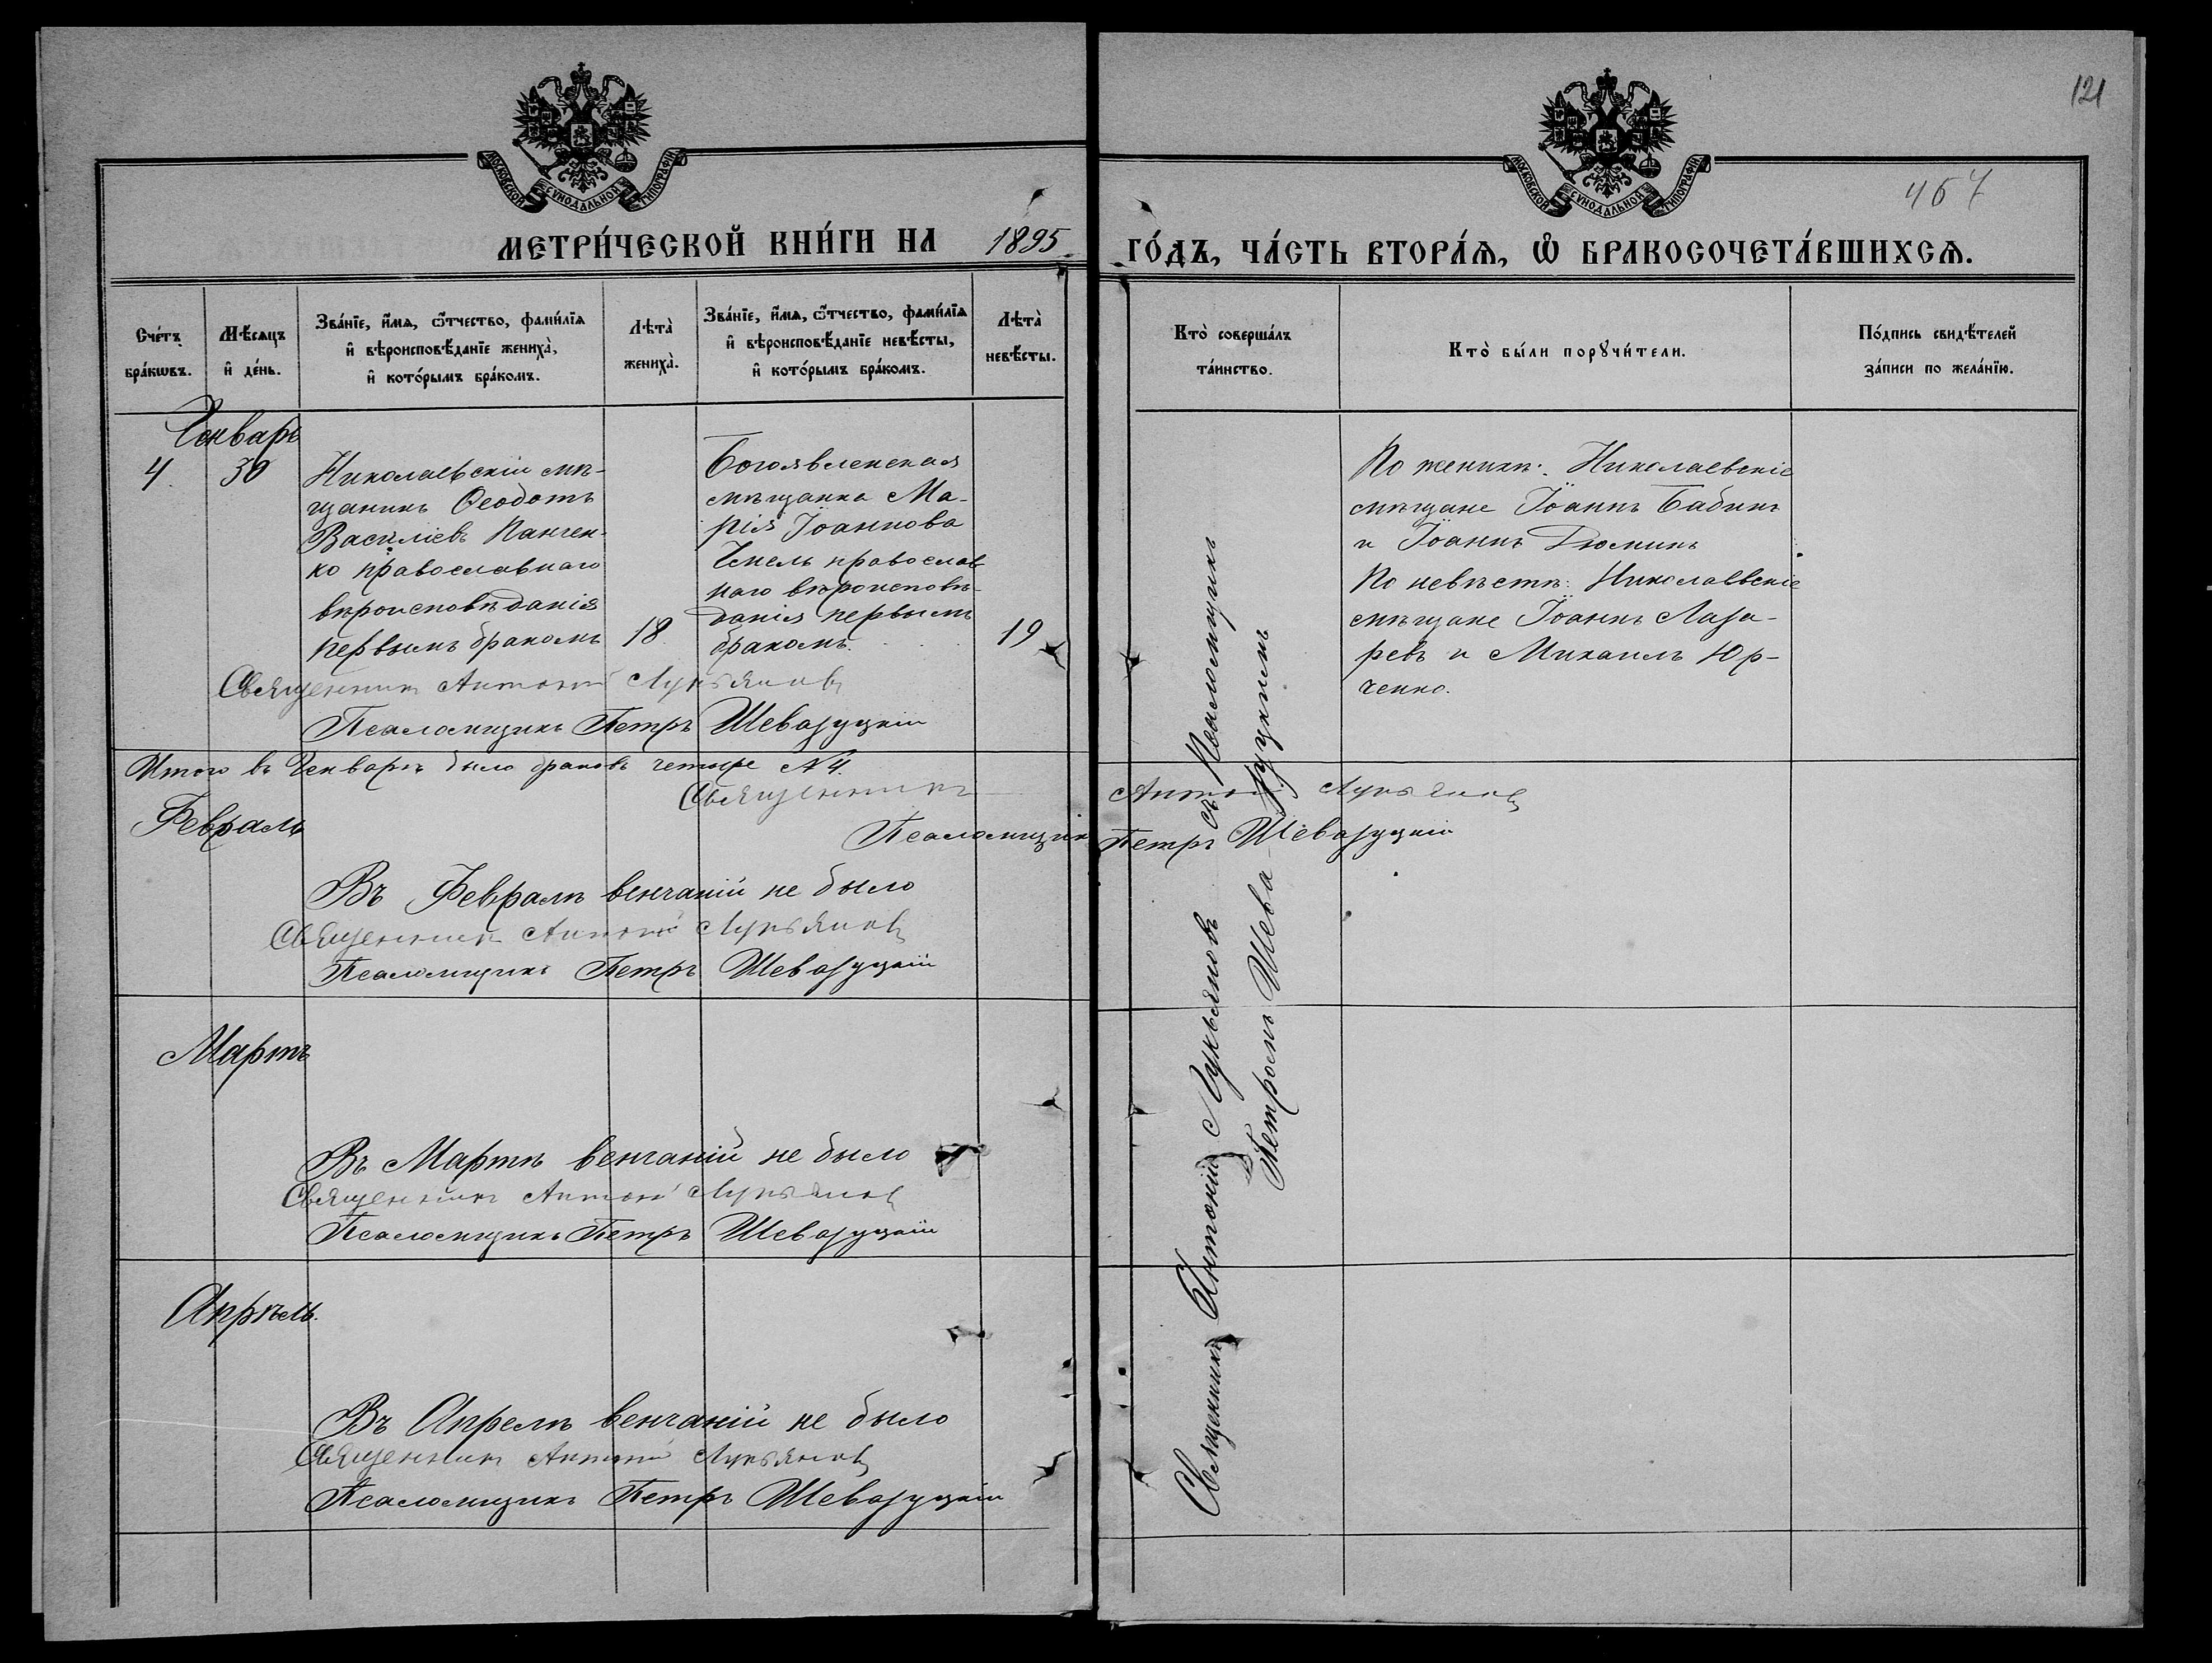 121
457
МОСКОВСКОЙ СѴНОДАЛЬНОЙ ТИПОГРАФІИ
МОСКОВСКОЙ СѴНОДАЛЬНОЙ ТИПОГРАФІИ
МЕТРИ́ЧЕСКОЙ КНИ́ГИ НА 1895
ГО́ДЪ, ЧА́СТЬ ВТОРА́Ѧ, Ѽ БРАКОСОЧЕТА́ВШИХСѦ.
Сче́тъ
бра́кѡвъ.
Мѣ́сѧцъ
и҆ де́нь.
Зва́нїе, и҆́мѧ, ѻ҆́тчество, фами́лїѧ
и҆ вѣроисповѣ́данїе жениха̀,
и҆ кото́рымъ бра́комъ.
Лѣта̀
жениха̀.
Зва́нїе, и҆́мѧ, ѻ҆́тчество, фами́лїѧ
и҆ вѣроисповѣ́данїе невѣ́сты,
и҆ кото́рымъ бра́комъ.
Лѣта̀
невѣ́сты.
Кто̀ соверша́лъ
та́инство.
Кто̀ бы́ли порꙋчи́тели.
По́дпись свидѣ́телей
за́писи по жела́нїю.
Генварь
4. 30
Николаевскій мѣ-
щанинъ Ѳеодотъ
Василіевъ Панчен-
ко православнаго
вѣроисповѣданія
первымъ бракомъ
18
Богоявленская
мѣщанка Ма-
рія Іоаннова
Чмель православ
наго вѣроисповѣ-
данія первымъ
бракомъ.
19
По женихѣ: Николаевскіе
мѣщане Іоаннъ Бабинъ
и Іоаннъ Дюминъ
По невѣстѣ: Николаевскіе
мѣщане Іоаннъ Лаза-
ревъ и Михаилъ Юр-
ченко.
Священникъ Антоній Лукьяновъ съ Псаломщикомъ
Петромъ Шева-зуцкимъ
Священникъ Антоній Лукьяновъ
Псаломщикъ Петръ Шевазуцкій
Итого въ Генварѣ было браковъ четыре № 4.
Священникъ Антоній Лукьяновъ
Псаломщикъ Петръ Шевазуцкій
Февраль
Въ Февралѣ венчаній не было
Священникъ Антоній Лукьяновъ
Псаломщикъ Петръ Шевазуцкій
Мартъ
Въ Мартѣ венчаній не было
Священникъ Антоній Лукьяновъ
Псаломщикъ Петръ Шевазуцкій
Апрѣль.
Въ Апрелѣ венчаній не было
Священникъ Антоній Лукьяновъ
Псаломщикъ Петръ Шевазуцкій